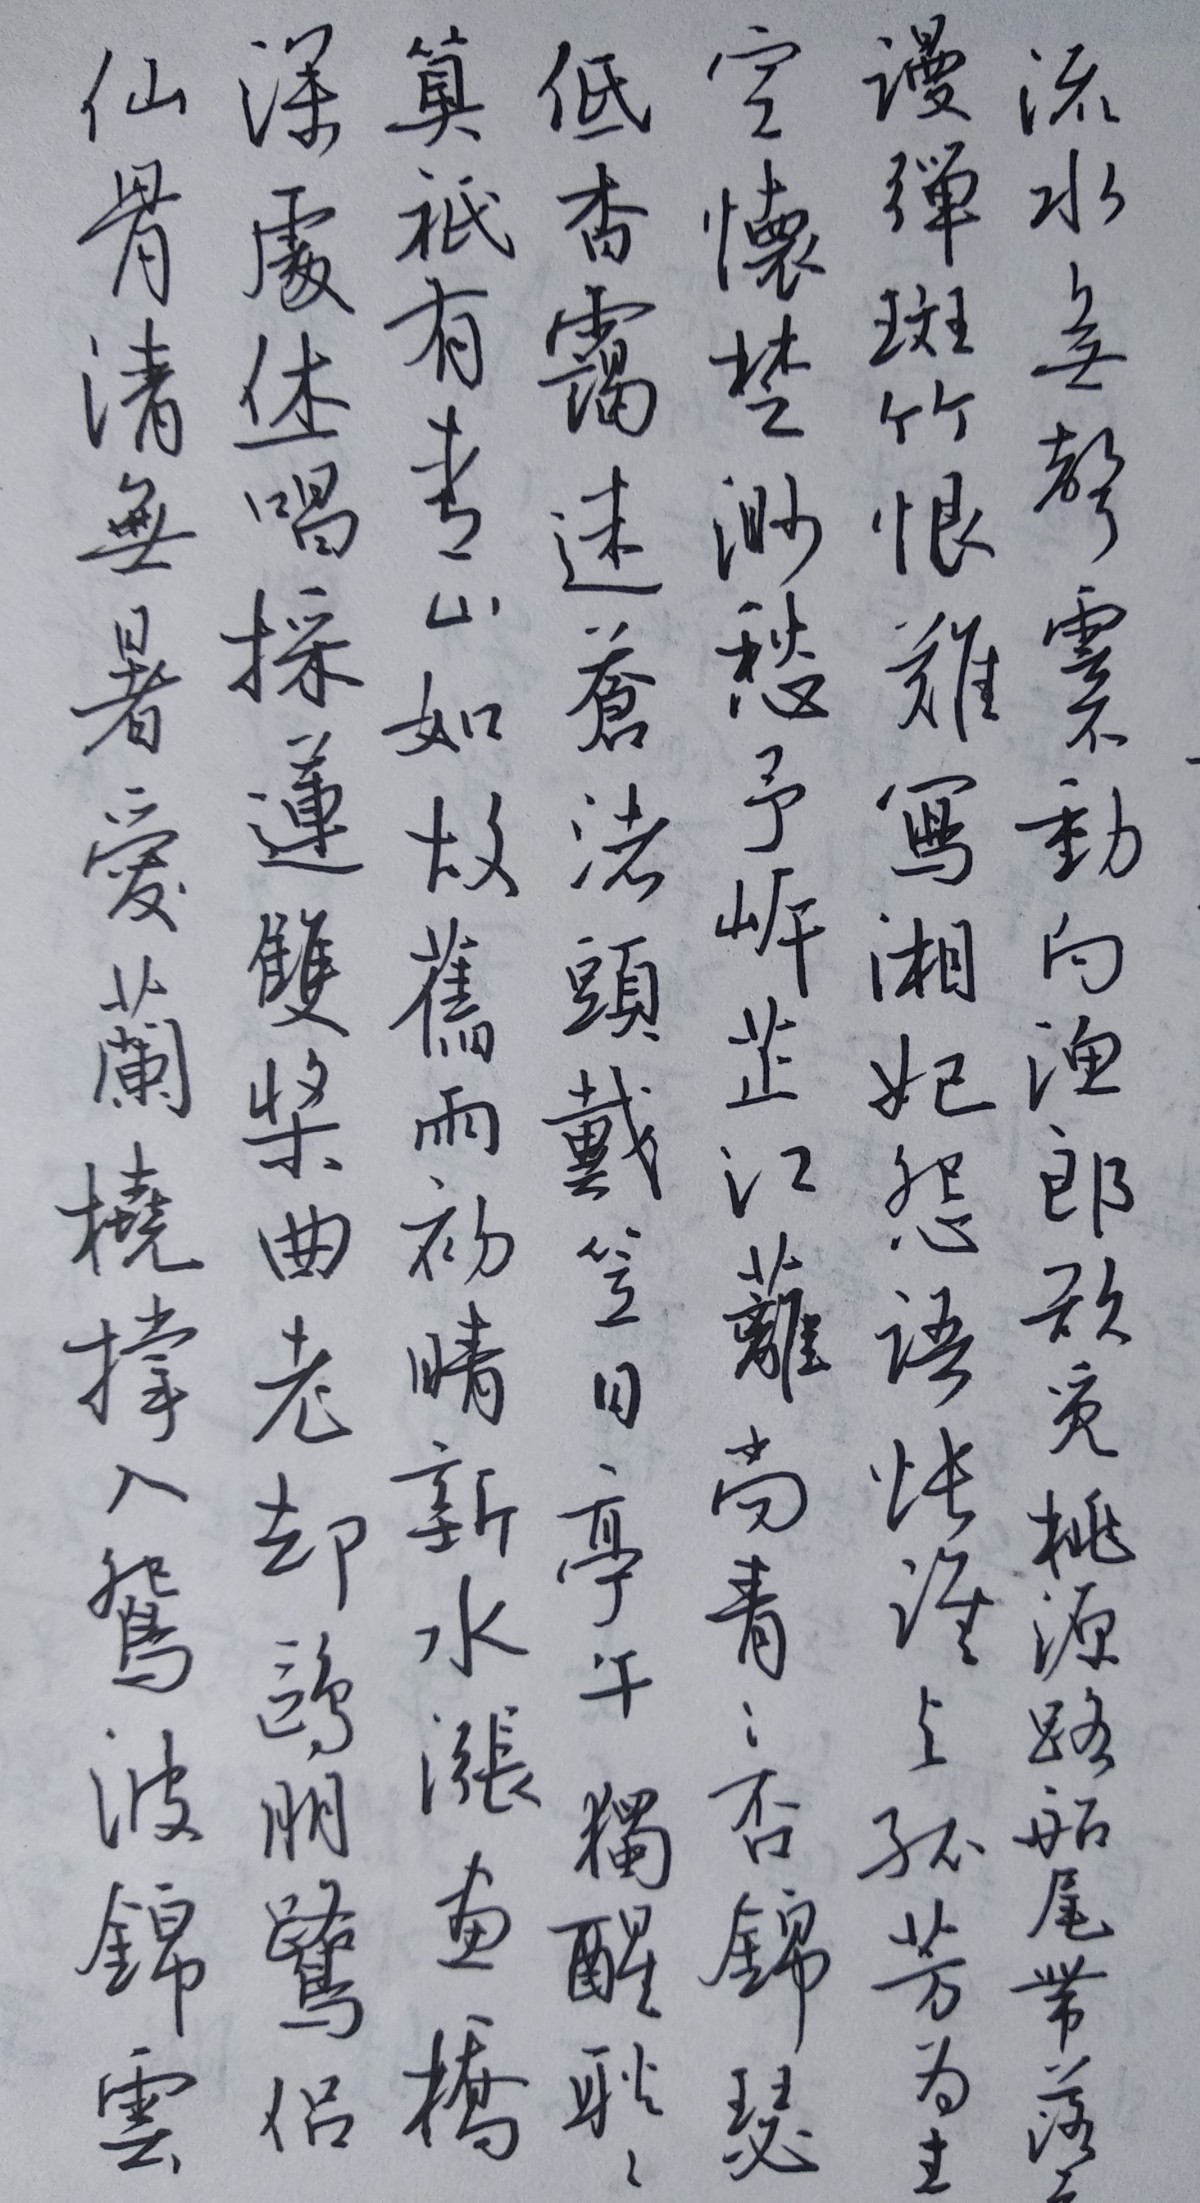 仙骨清無暑愛蘭橈撐入鴛波錦雲
深處休唱採蓮雙槳曲老却鷗朋鷺侶
算祇有青山如故舊雨初晴新水漲畫橋
低香靄迷蒼渚頭戴笠日亭午獨醒耿々
空懷楚渺愁予岸芷江蘺尚青々否錦瑟
謾彈斑竹恨難寫湘妃怨語悵誰与孤芳為主
流水無聲雲不動向漁郎欲覓桃源路船尾帶落